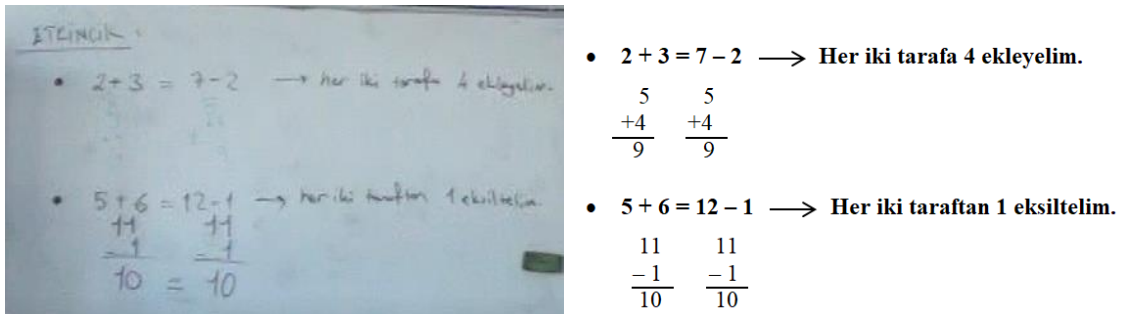 ETKİNLİK :
• 2+3 = 7-2 → her iki tarafa 4 ekleyelim.
• 5+6 = 12-1 → her iki taraftan 1 eksiltelim.
11 11
-1 -1
10 = 10
• 2 + 3 = 7 – 2 → Her iki tarafa 4 ekleyelim.
5 5
+4 +4
9 9
• 5 + 6 = 12 – 1 → Her iki taraftan 1 eksiltelim.
11 11
– 1 – 1
10 10